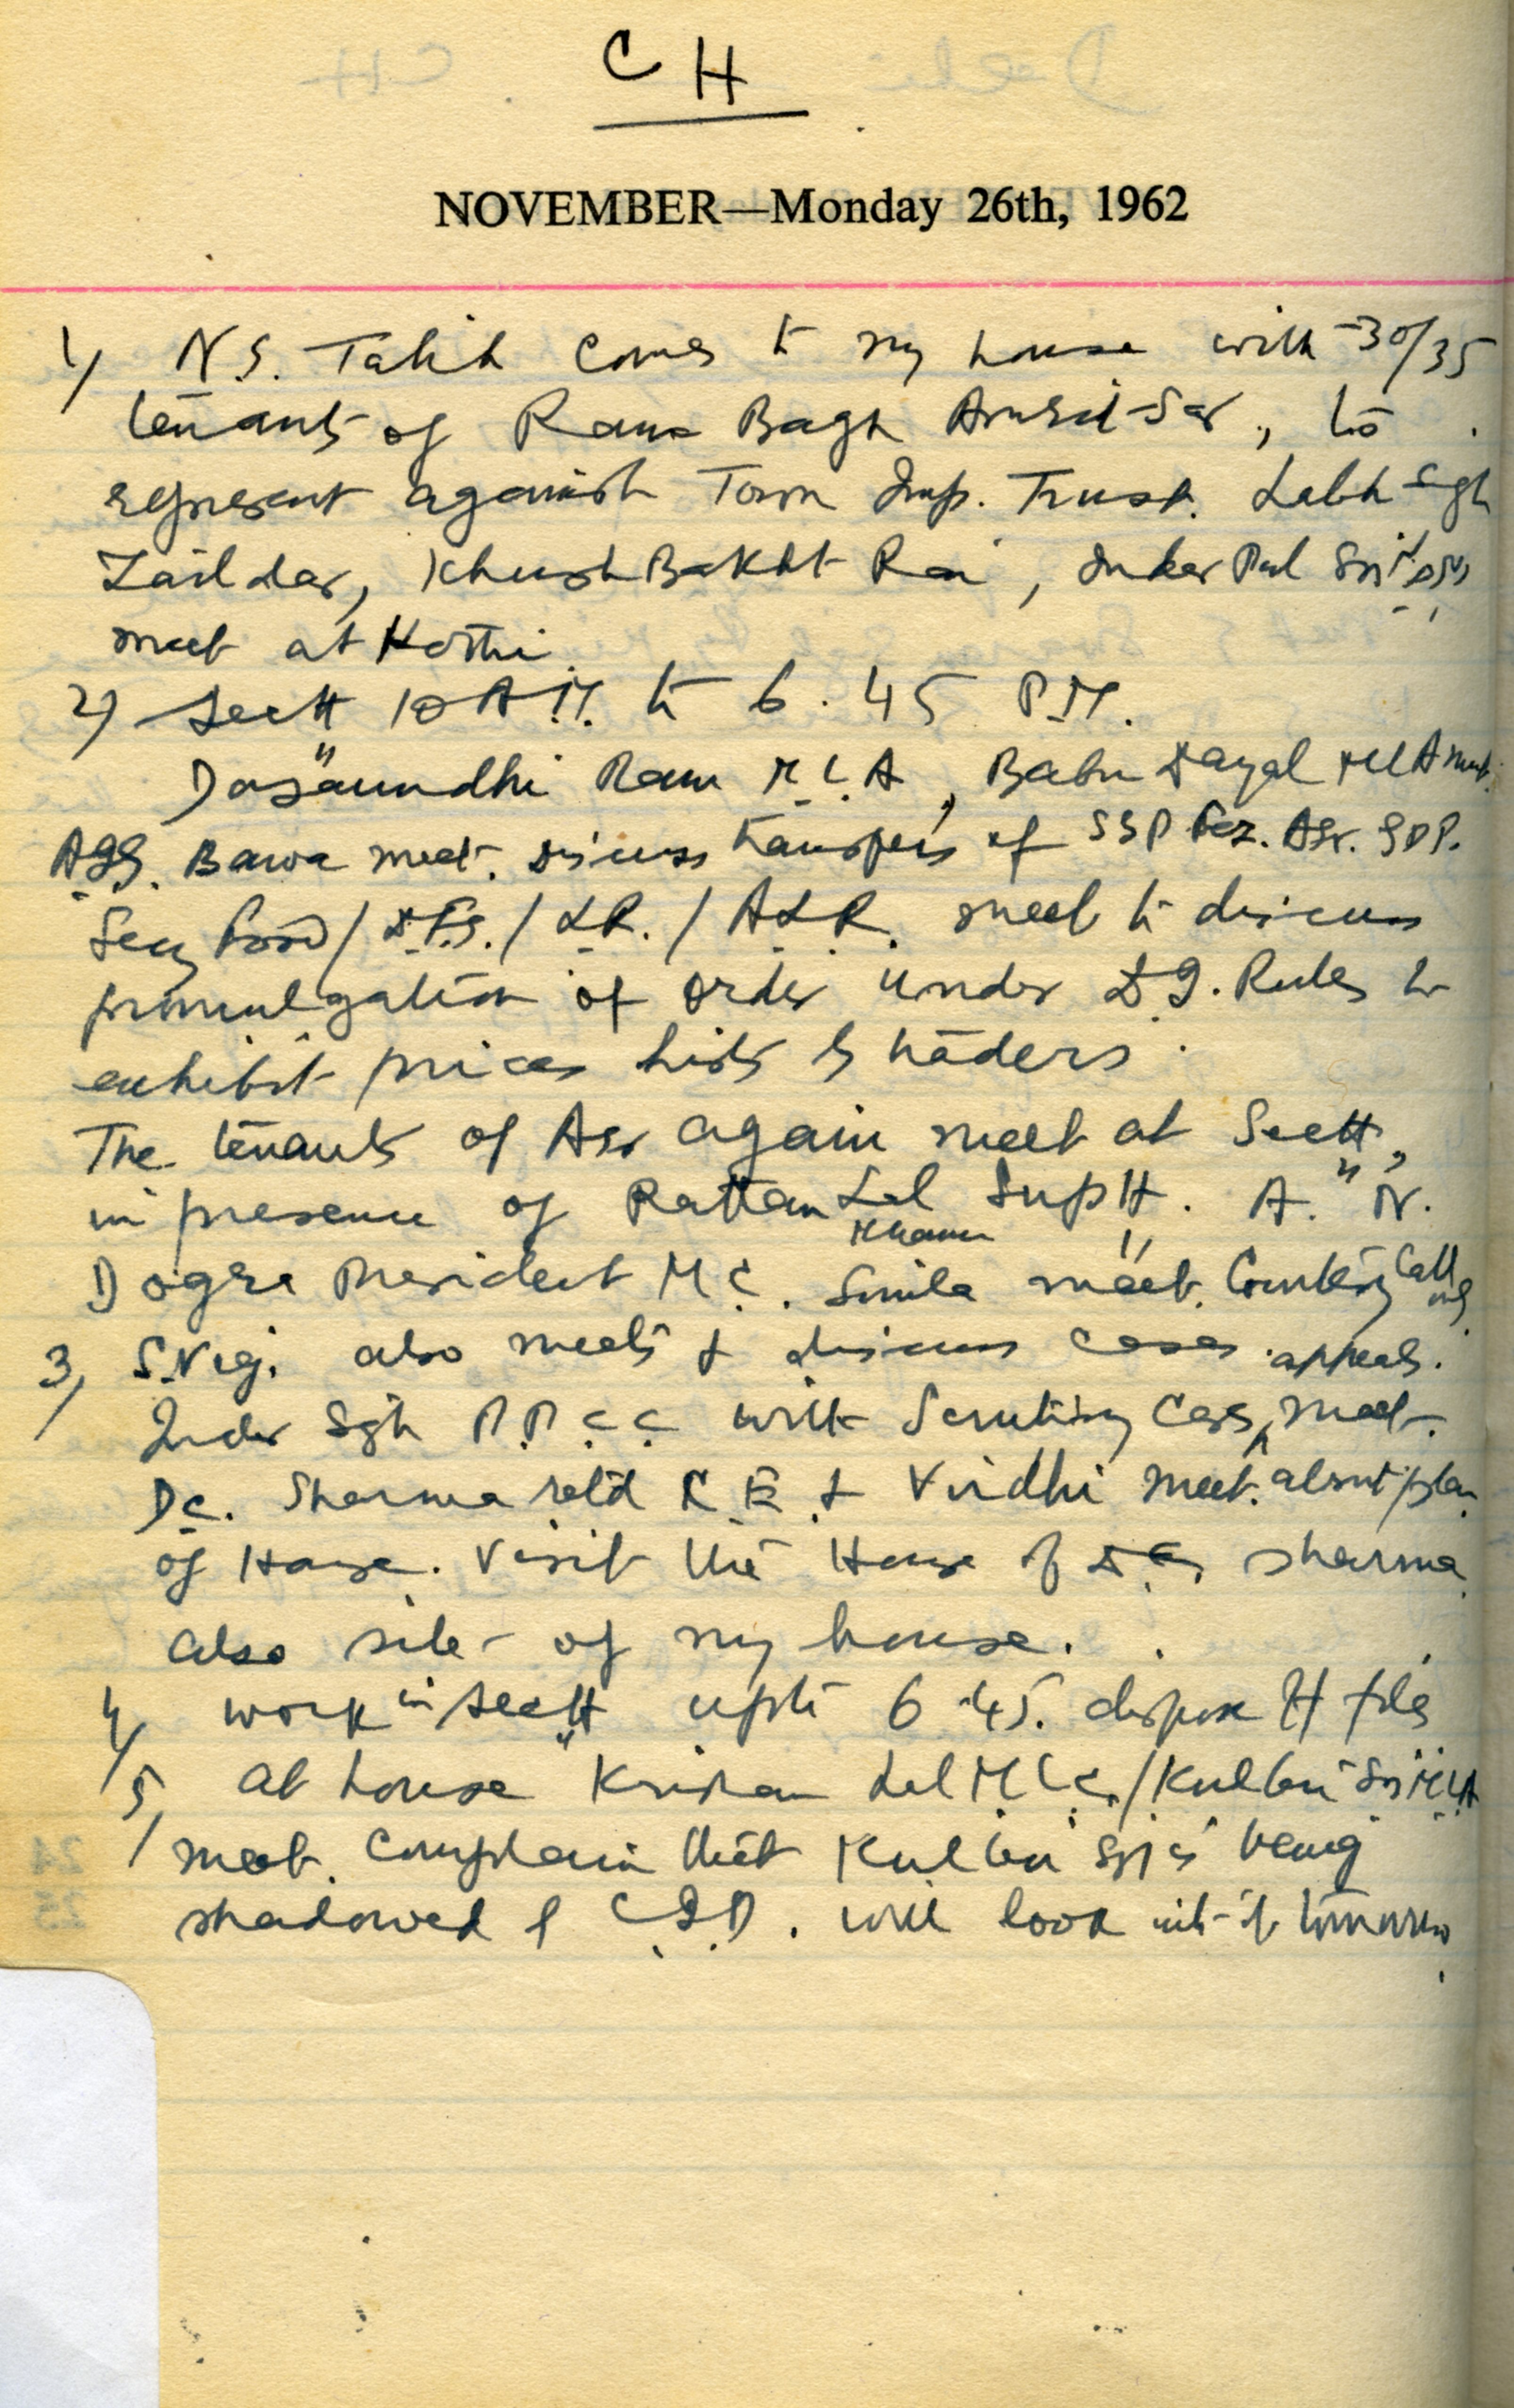 CH
NOVEMBER—Monday 26th, 1962
1/ N.S. Talib comes to my house with 30/35
tenants of Ram Bagh Amritsar, to
represent against Town Imp. Trust. Labh Sgh
Zaildar, Khush Bakht Rai, Inder Pal
meet at Kothi
2) Sectt 10 A.M. to 6.45 P.M.
Dasaundhi Ram M.L.A, Babu Dayal MLA meet.
Bawa meet. Discuss transfers of SSP Fez. Asr.
Secy Food / / L.R. / A.L.R. meet to discuss
promulgation of order under D.I. Rules to
exhibit prices lists by traders.
The tenants of Asr again meet at Sectt,
in presence of Rattan Lal Supdt. A. N.
Khanna
Dogra President M.C. Simla meet. Courtesy Call only
3/ S. Vig. also meets & discuss cases. appeals.
Inder Sgh P.P.C.C with Scrutiny Cases meet.
D.C. Sharma retd C.E. & Virdhi meet. about plan
of House. Visit the House of D.C. Sharma
also site of my house.
4/ work in Sectt upto 6.45. dispose of files
5/ at house Krishan Lal M.L.C./Kulbir M.L.A
meet. Complain that Kulbir is being
shadowed by C.I.D. will look into it tomorrow